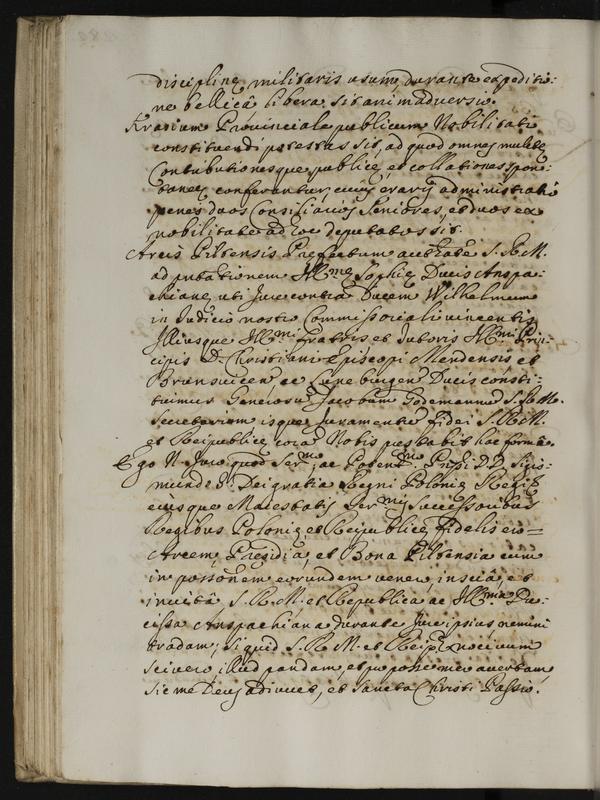 disciplinę militaris usum, durante expeditio:
ne bellicâ libera sit animadversio.
Ærarium Provinciale publicum Nobilitati
constituendi potestas sit, ad quod omnes mulctę
Contributionesque publicę, et collationes spon
taneę conferantur, cuius erarij administratio
penes duos Consiliarios Seniores, et duos ex
nobilitate ad hoc deputatos sit.
Arcis Piltensis Prefectum authtate S. R. M.
ad Illme Sophię Ducis Anspa:
chianę, uti Jure contra Ducem Wilhelmum
in Judicio nostro Commissoriali vincentis
Illiusque Illmi fratris et tutoris Illmi Prin:
cipis D. Christiani Episcopi Mendensis et
Brunsuicen ac Luneburgen Ducis consti:
tuimus Generosum Jacobum Godemannum S. R. M.
Secretarium isque Juramentum fidei S. R. M.
et Reipublicę corã Nobis pręstabit hac forma.
Ego N. Juro quod Sermo ac Potentmo Prnpi D D Sigis:
mundo 3. Dei gratia Regni Polonię Regi
eiusque Maiestatis Sermis Successoribus
Regibus Polonię et Reipublicę fidelis ero
Arcem, Pręsidia, et Bona Piltensia cum
in possonem eorundem venero, insciâ, et
invitâ S. R. M. et Republica ac Illma Du:
cissa Anspachiana durante Jure ipsius nemini
tradam; si quid S. R. M. et Reiplę nocivum
scivero illud pandam, et pro posse meo avertam
Sic me Deus adiuvet, et Sancta Christi Passio.